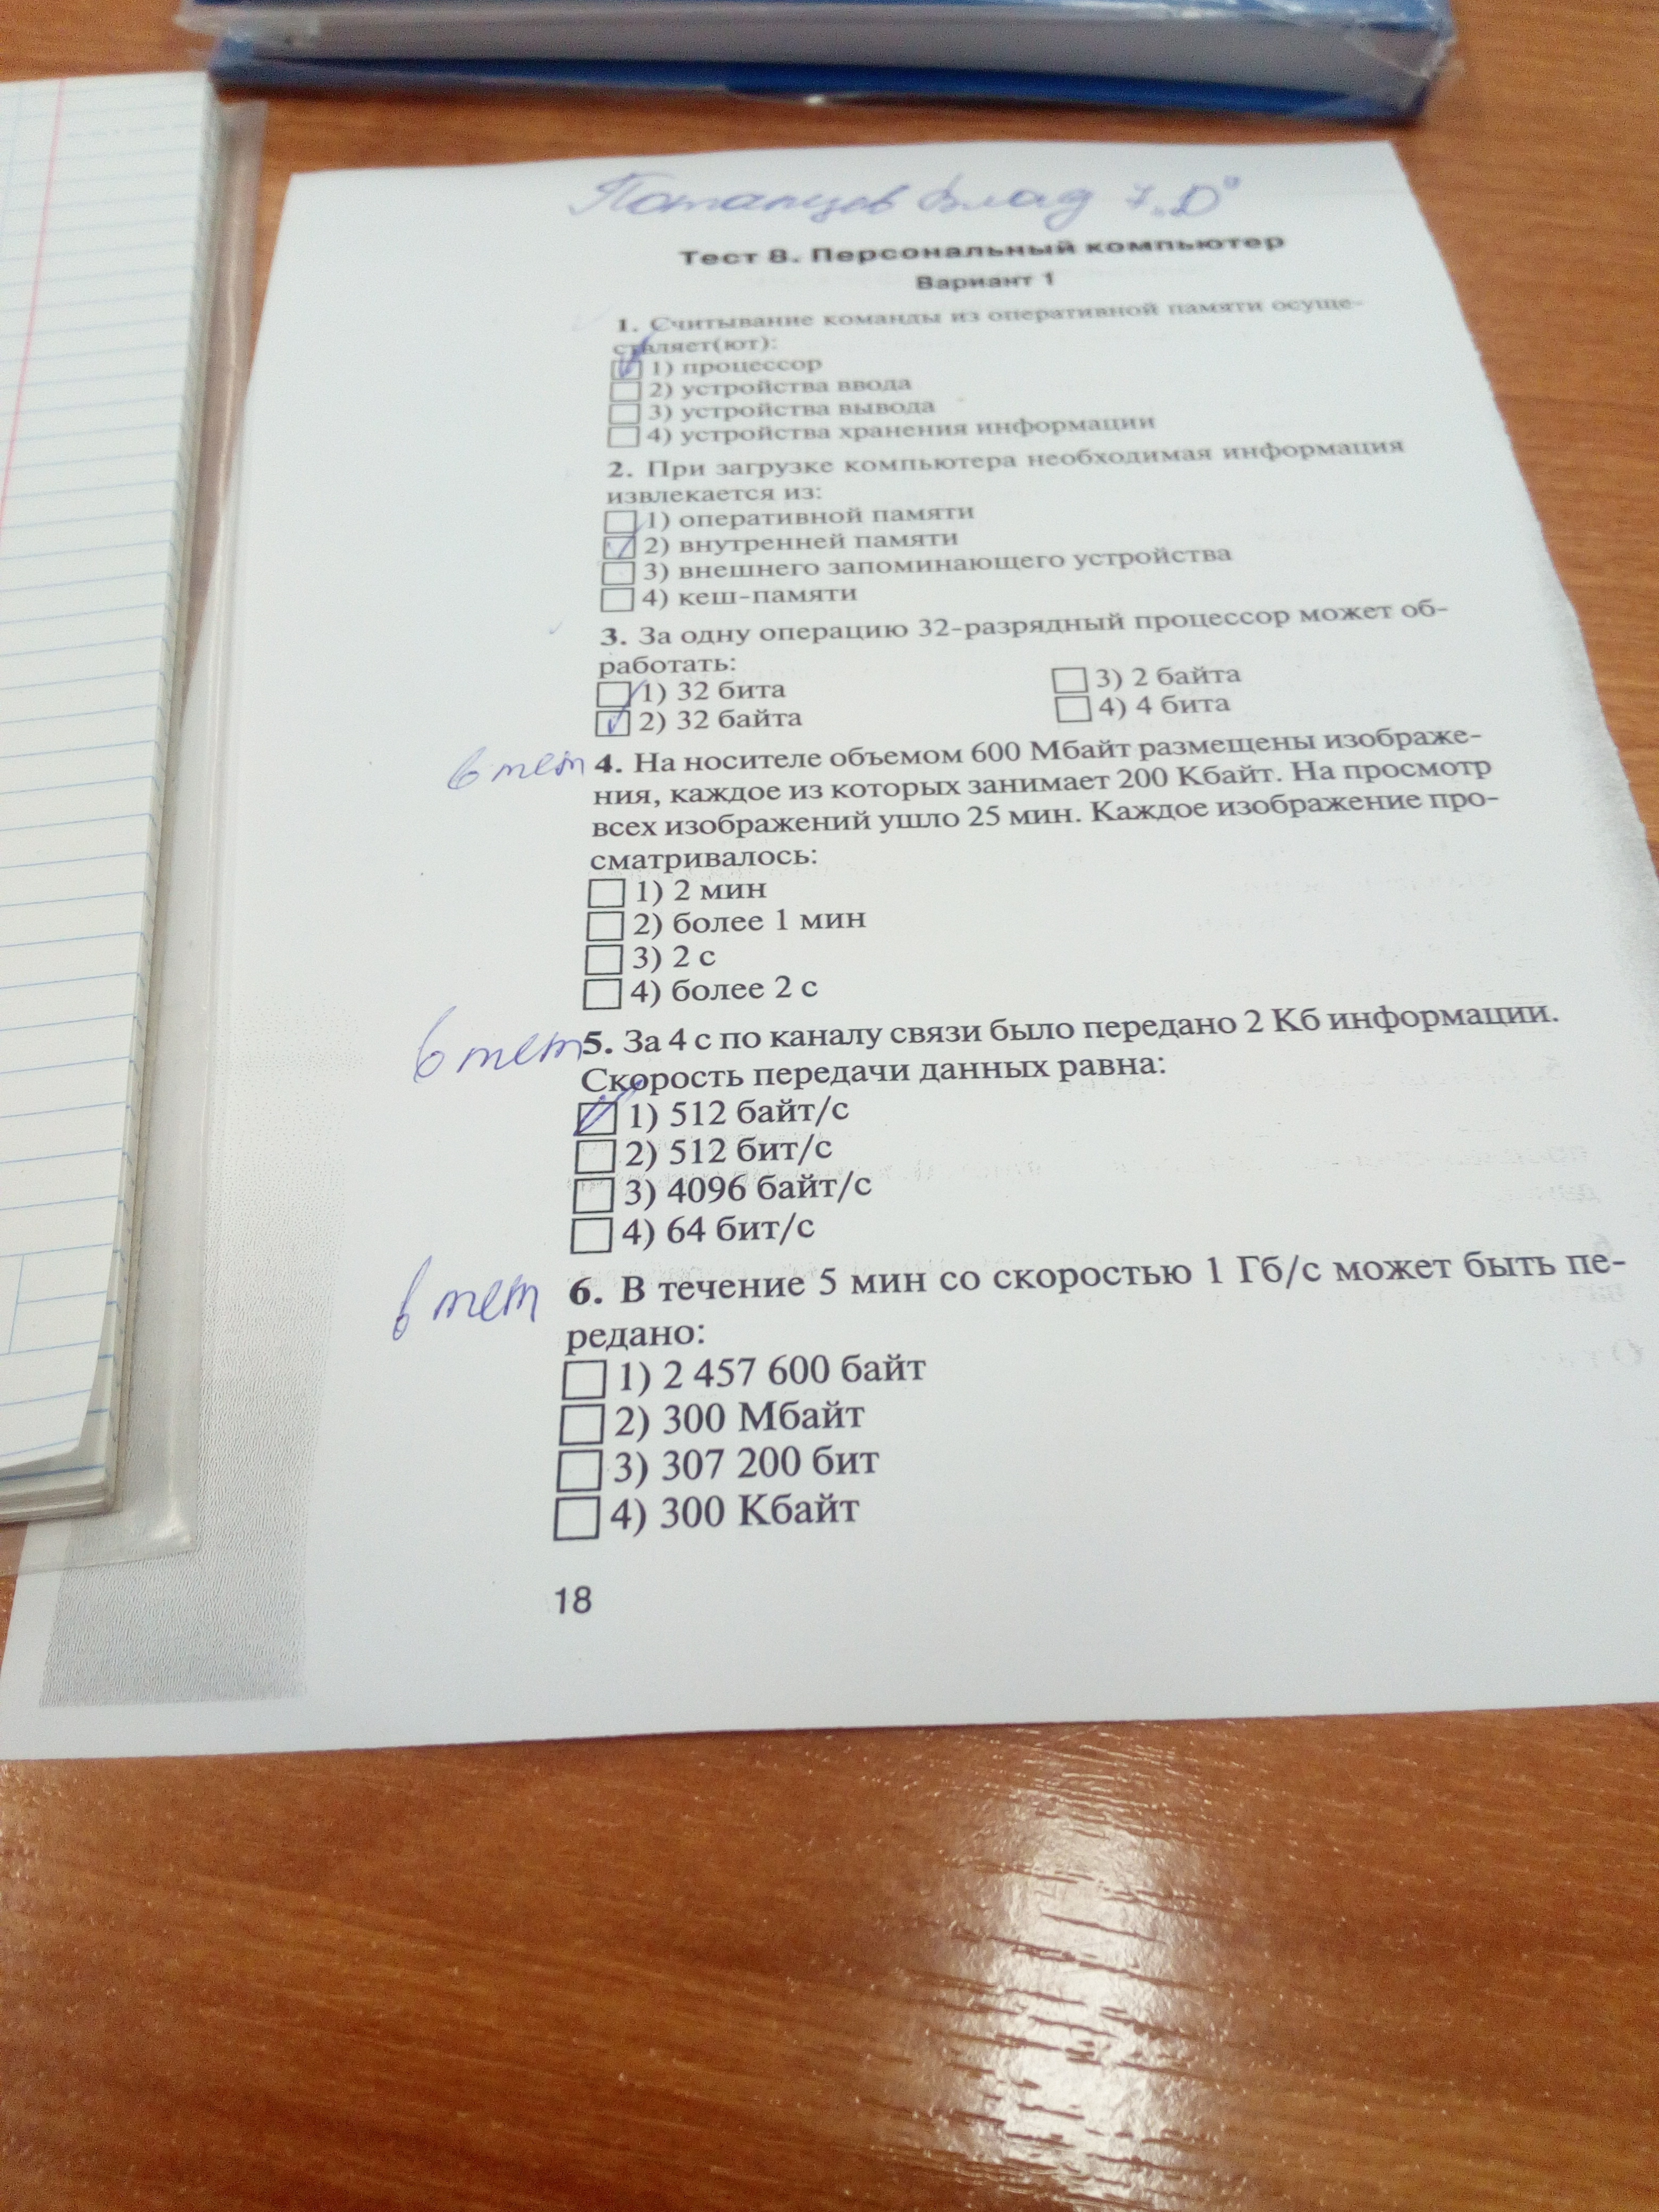 Потапцев Влад 7 „D"
Тест 8. Персональный компьютер
Вариант 1
1. Считывание команды из оперативной памяти осуще-
ствляет(ют):
1) процессор
2) устройства ввода
3) устройства вывода
4) устройства хранения информации
2. При загрузке компьютера необходимая информация
извлекается из:
1) оперативной памяти
2) внутренней памяти
3) внешнего запоминающего устройства
4) кеш-памяти
3. За одну операцию 32-разрядный процессор может об-
работать:
1) 32 бита
2) 32 байта
3) 2 байта
4) 4 бита
в тет 4. На носителе объемом 600 Мбайт размещены изображе-
ния, каждое из которых занимает 200 Кбайт. На просмотр
всех изображений ушло 25 мин. Каждое изображение про-
сматривалось:
1) 2 мин
2) более 1 мин
3) 2 с
4) более 2 с
в тет 5. За 4 с по каналу связи было передано 2 Кб информации.
Скорость передачи данных равна:
1) 512 байт/с
2) 512 бит/с
3) 4096 байт/с
4) 64 бит/с
в тет 6. В течение 5 мин со скоростью 1 Гб/с может быть пе-
редано:
1) 2 457 600 байт
2) 300 Мбайт
3) 307 200 бит
4) 300 Кбайт
18